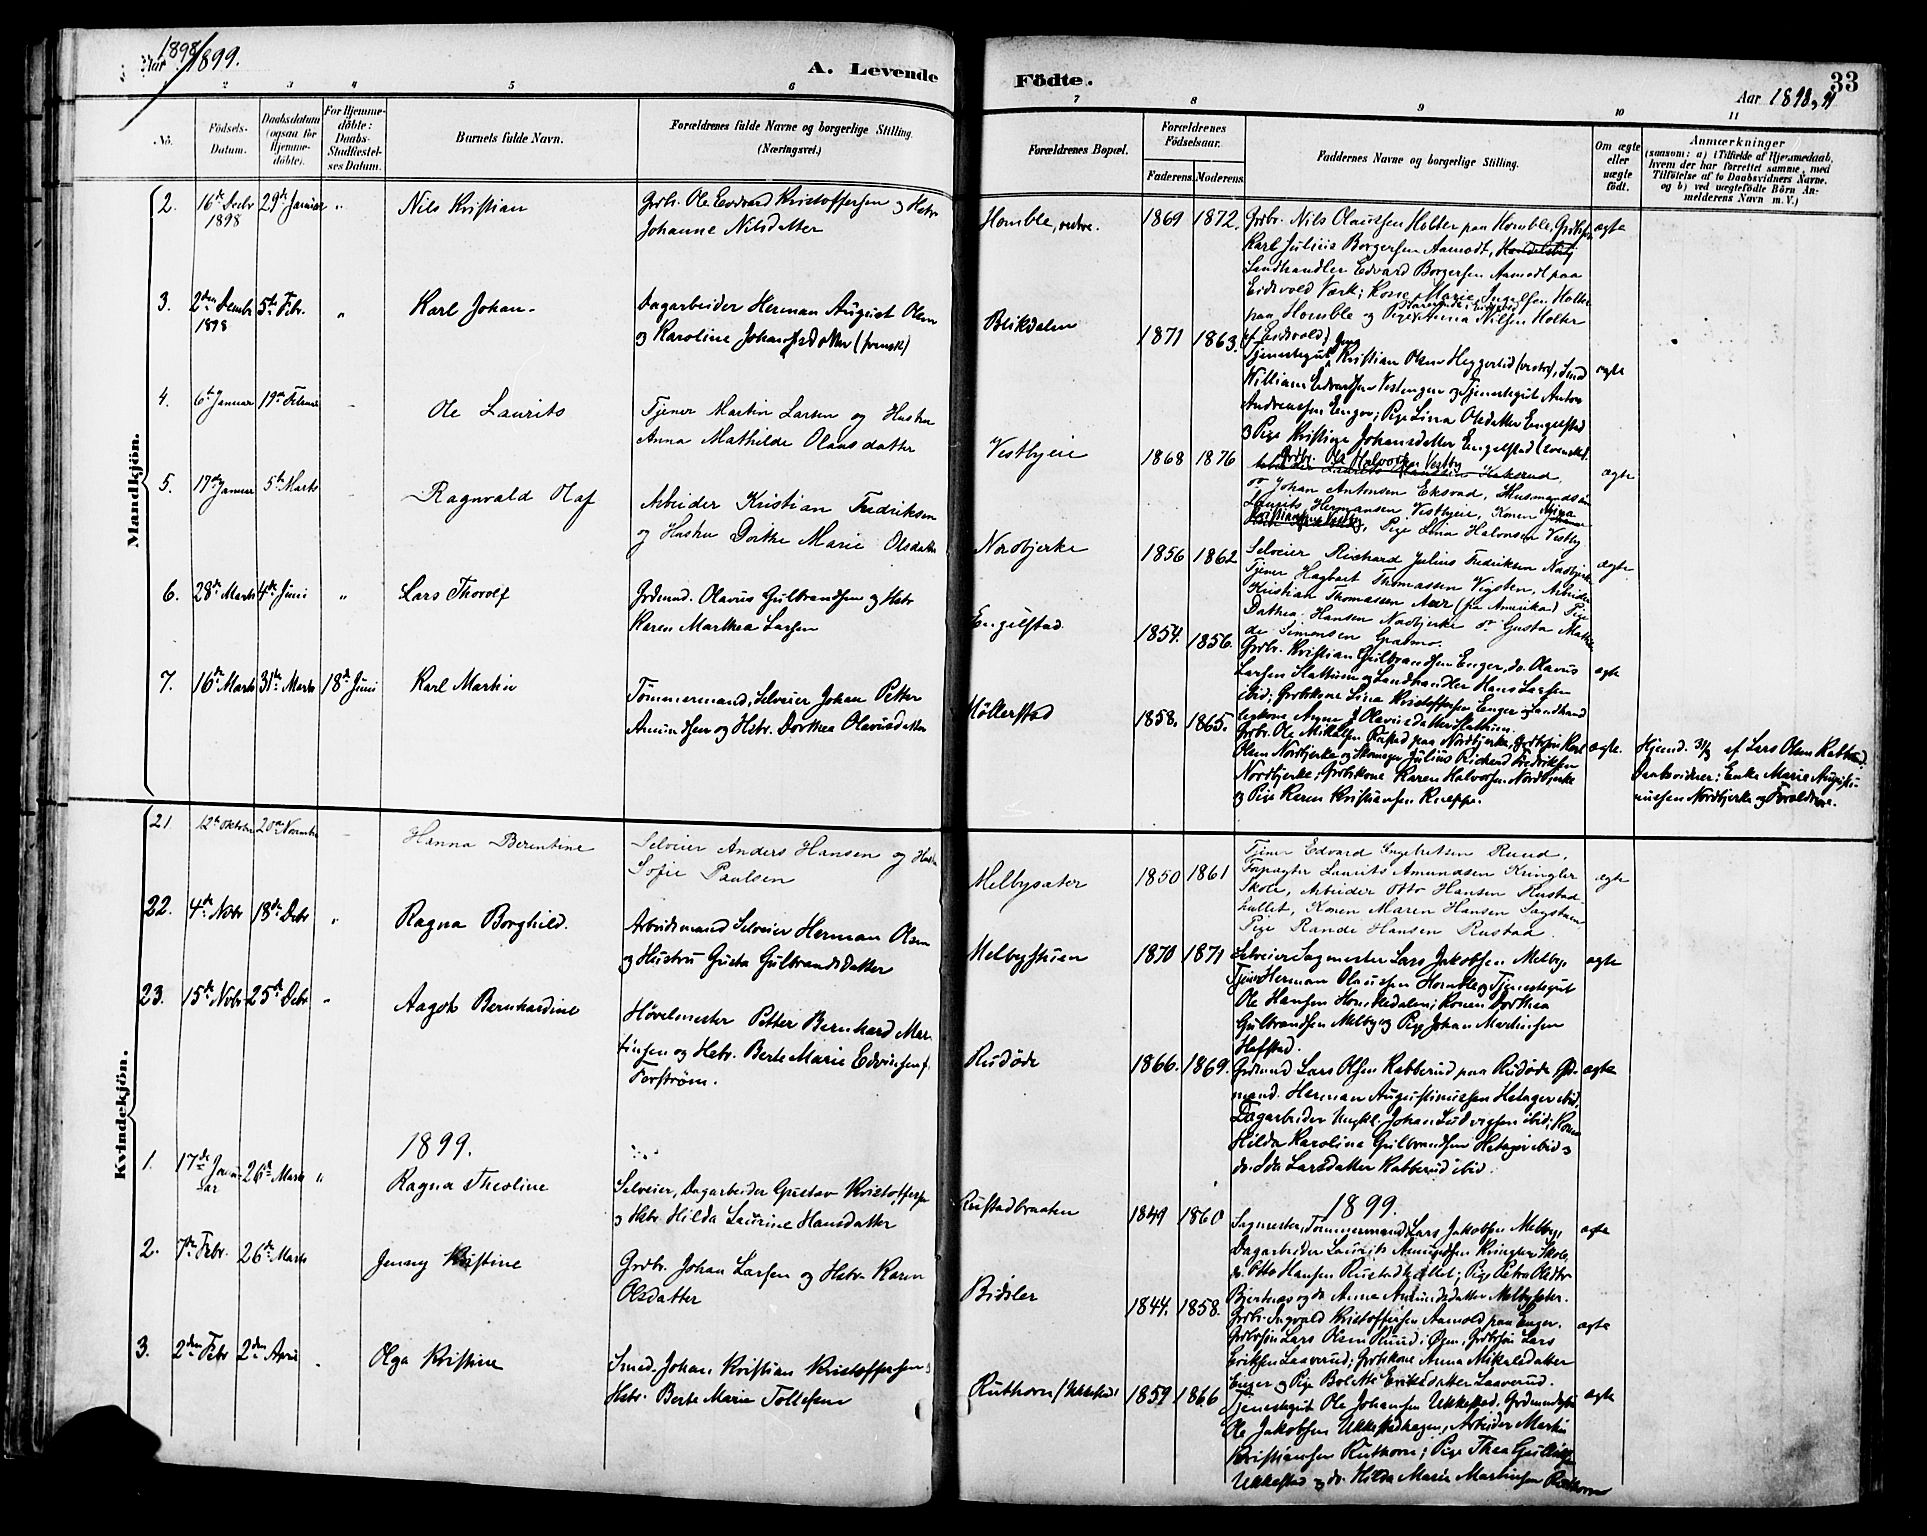 Aar 1898/1899.
A. Levende
Födte.
33
Aar 1898, 99
2 3 4 5 6 7 8 9 10 11
No.
Födsels-
Datum.
Daabsdatum
(ogsaa for
Hjemme-
döbte).
For Hjemme-
döbte:
Daabs-
Stadfæstel-
ses Datum.
Barnets fulde Navn.
Forældrenes fulde Navne og borgerlige Stilling.
(Næringsvei.)
Forældrenes Bopæl.
Forældrenes
Födselsaar.
Faderens. Moderens.
Faddernes Navne og borgerlige Stilling.
Om ægte
eller
uægte
födt.
Anmærkninger
(saasom: a) i Tilfælde af Hjemmedaab,
hvem der har forrettet samme, med
Tilföielse af to Daabsvidners Navne,
og b) ved uægtefödte Börn An-
melderens Navn m. V.)
Mandkjön.
2. 16de Decbr 1898 29de Januar " Nils Kristian
Grdbr. Ole Edvard Kristoffersen og Hstr
Johanne Nilsdatter
Homble, vestre. 1869 1872.
Grdbr. Nils Olaussen Holter paa Homble,
Karl Julius Borgersen Aamodt,
Landhandler Edvard Borgersen Aamodt paa
Eidsvold Værk; Kone Marie Ingelsen Holter
paa Homble og Pige Anna Nilsen Holter
(f. Eidsvold)
ægte
3. 2den Decembr 1898 5te Febr. " Karl Johan.
Dagarbeider Herman August Olsen
og Karoline Johansdatter (svensk)
Blikdalen 1871 1863.
Tjenestegut Kristian Olsen Heggerud (vestre), Smed
William Edvardsen Vestengen og Tjenestegut Anton
Andreassen Enger; Pige Lina Olsdatter Engelstad
og Pige Kristine Johansdatter Engelstad (svensk).
ægte
4. 6te Januar 19de Februar " Ole Laurits
Tjener Martin Larsen og Hustru
Anna Mathilde Olausdatter
Vestbyeie 1868 1876
Grdbr. Ole Halvorsen Vestby
Johan Antonsen Eksvad, Husmandsøn
Laurits Hermansen Vestbyeie, Konen
Pige Lina Halvorsen Vestby
ægte
5. 17de Januar 5te Marts Ragnvald Olaf
Arbeider Kristian Fredriksen
og Hustru Dorthe Marie Olsdatter
Nordbjerke 1856 1862
Selveier Richard Julius Fredriksen Nordbjerke
Tjener Hagbart Thomassen Vigsten, Arbeider
Kristian Thomassen Aur (fra Amerika) Pige
Dathea Hansen Nordbjerke or Gusta Mathil
de Simonsen Granmo.
ægte.
6. 28de Marts 4de Juni " Lars Thorolf
Grdmnd. Olavus Gulbrandsen og Hstr
Karen Marthea Larsen
Engelstad 1854. 1856.
Grdbr. Kristian Gulbrandsen Enger, do. Olavus
Larsen Slattum og Landhandler Hans Larsen
ibid; Grdbskone Lina Kristoffersen Enger og Landhand
lerkone Anne J. Olavusdatter Slattum.
ægte
7. 16de Marts 31te Marts 18de Juni Karl Martin
Tømmermand, Selveier Johan Petter
Amundsen og Hstr. Dorthea Olavusdatter
Møllerstad 1858. 1865.
Grdbr. Ole Mikelsen paa Nordbjerke, Grdbrsøn Karl
Olsen Nordbjerke og Skomager Julius Richard Fredriksen
Nordbjerke; Grdbskone Karen Halvorsen Nordbjerke
og Pige Karen Kristiansen Kneppe.
ægte.
Hjemd. 31/3 af Lars Olsen Rabberud.
Daabsvidner: Enke Marie Augusti-
nussen Nordbjerke og Forældrene.
Kvindekjön.
21 12te Oktober 20de Novembr Hanna Berentine
Selveier Anders Hansen og Hustru
Sofie Paulsen
Melbysæter 1850 1861
Tjener Edvard Engebretsen Ruud,
Forpagter Laurits Amundsen Kringler
Skole, Arbeider Otto Hansen Rustad-
hullet, Konen Maren Hansen Sagstuen
Pige Rande Hansen Rustad.
ægte
22. 4de Novbr 18de Decbr " Ragna Borghild.
Arbeidsmand Selveier Herman Olsen
og Hustru Gusta Gulbrandsdatter
Melbystuen 1870 1871
Selveier Sagmester Lars Jakobsen Melby,
Tjener Herman Olaussen Homble og Tjenestegut
Ole Hansen Hombledalen; Konen Dorthea
Gulbrandsen Melby og Pige Johan Martinsen
Hafstad.
ægte
23. 15de Novbr 25de Decbr " Aagot Bernhardine
Høvelmester Petter Bernhard Mar-
tinsen og Hstr. Berte Marie Edvinsen f.
Forstrøm.
Rudøde 1866. 1869.
Grdmand Lars Olsen Rabberud paa Rudøde Grd-
mand. Herman Augustinussen Hetager ibid,
Dagarbeider Ungkl. Johan Ludvigsen ibid; Kone
Hilda Karolina Gulbrandsen Hetager ibid og
do. Ida Larsdatter Rabberud ibid.
ægte
1899.
1899.
1. 17de Januar 26de Marts " Ragna Theoline
Selveier, Dagarbeider Gustav Kristoffersen
og Hstr. Hilda Laurine Hansdatter
Rustadbraaten 1849 1860
Sagmester, Tømmermand Lars Jakobsen Melby,
Dagarbeider Laurits Amundsen Kringler Skole,
do. Otto Hansen Rustadhullet; Pige Petra Olsdtr
Bjertnæs og do Anna Amundsdatter Melbysæter.
ægte
2. 7de Febr. 26de Marts Jenny Kristine
Grdbr. Johan Larsen og Hstr. Karen
Olsdatter
Bidsler 1844. 1858.
Grdbr. Ingvald Kristoffersen Aamold paa Enger.
Grdbrsøn Lars Olsen Ruud, Grdbrsøn Lars
Eriksen Laaverud; Grdbskone Anna Mikalsdatter
Enger og Pige Bolette Eriksdatter Laaverud.
ægte
3. 2den Febr 2den April Olga Kristine
Smed. Johan Kristian Kristoffersen og
Hstr. Berte Marie Tollefsen
Ruthorn (Ukkestad) 1859 1866
Tjenestegut Ole Johansen Ukkestad,
Ole Jakobsen Ukkestadhagen, Arbeider Martin
Kristiansen Ruthorn; Pige Thea
Ukkestad og do. Hilda Marie Martinsen Ruthorn
ægte